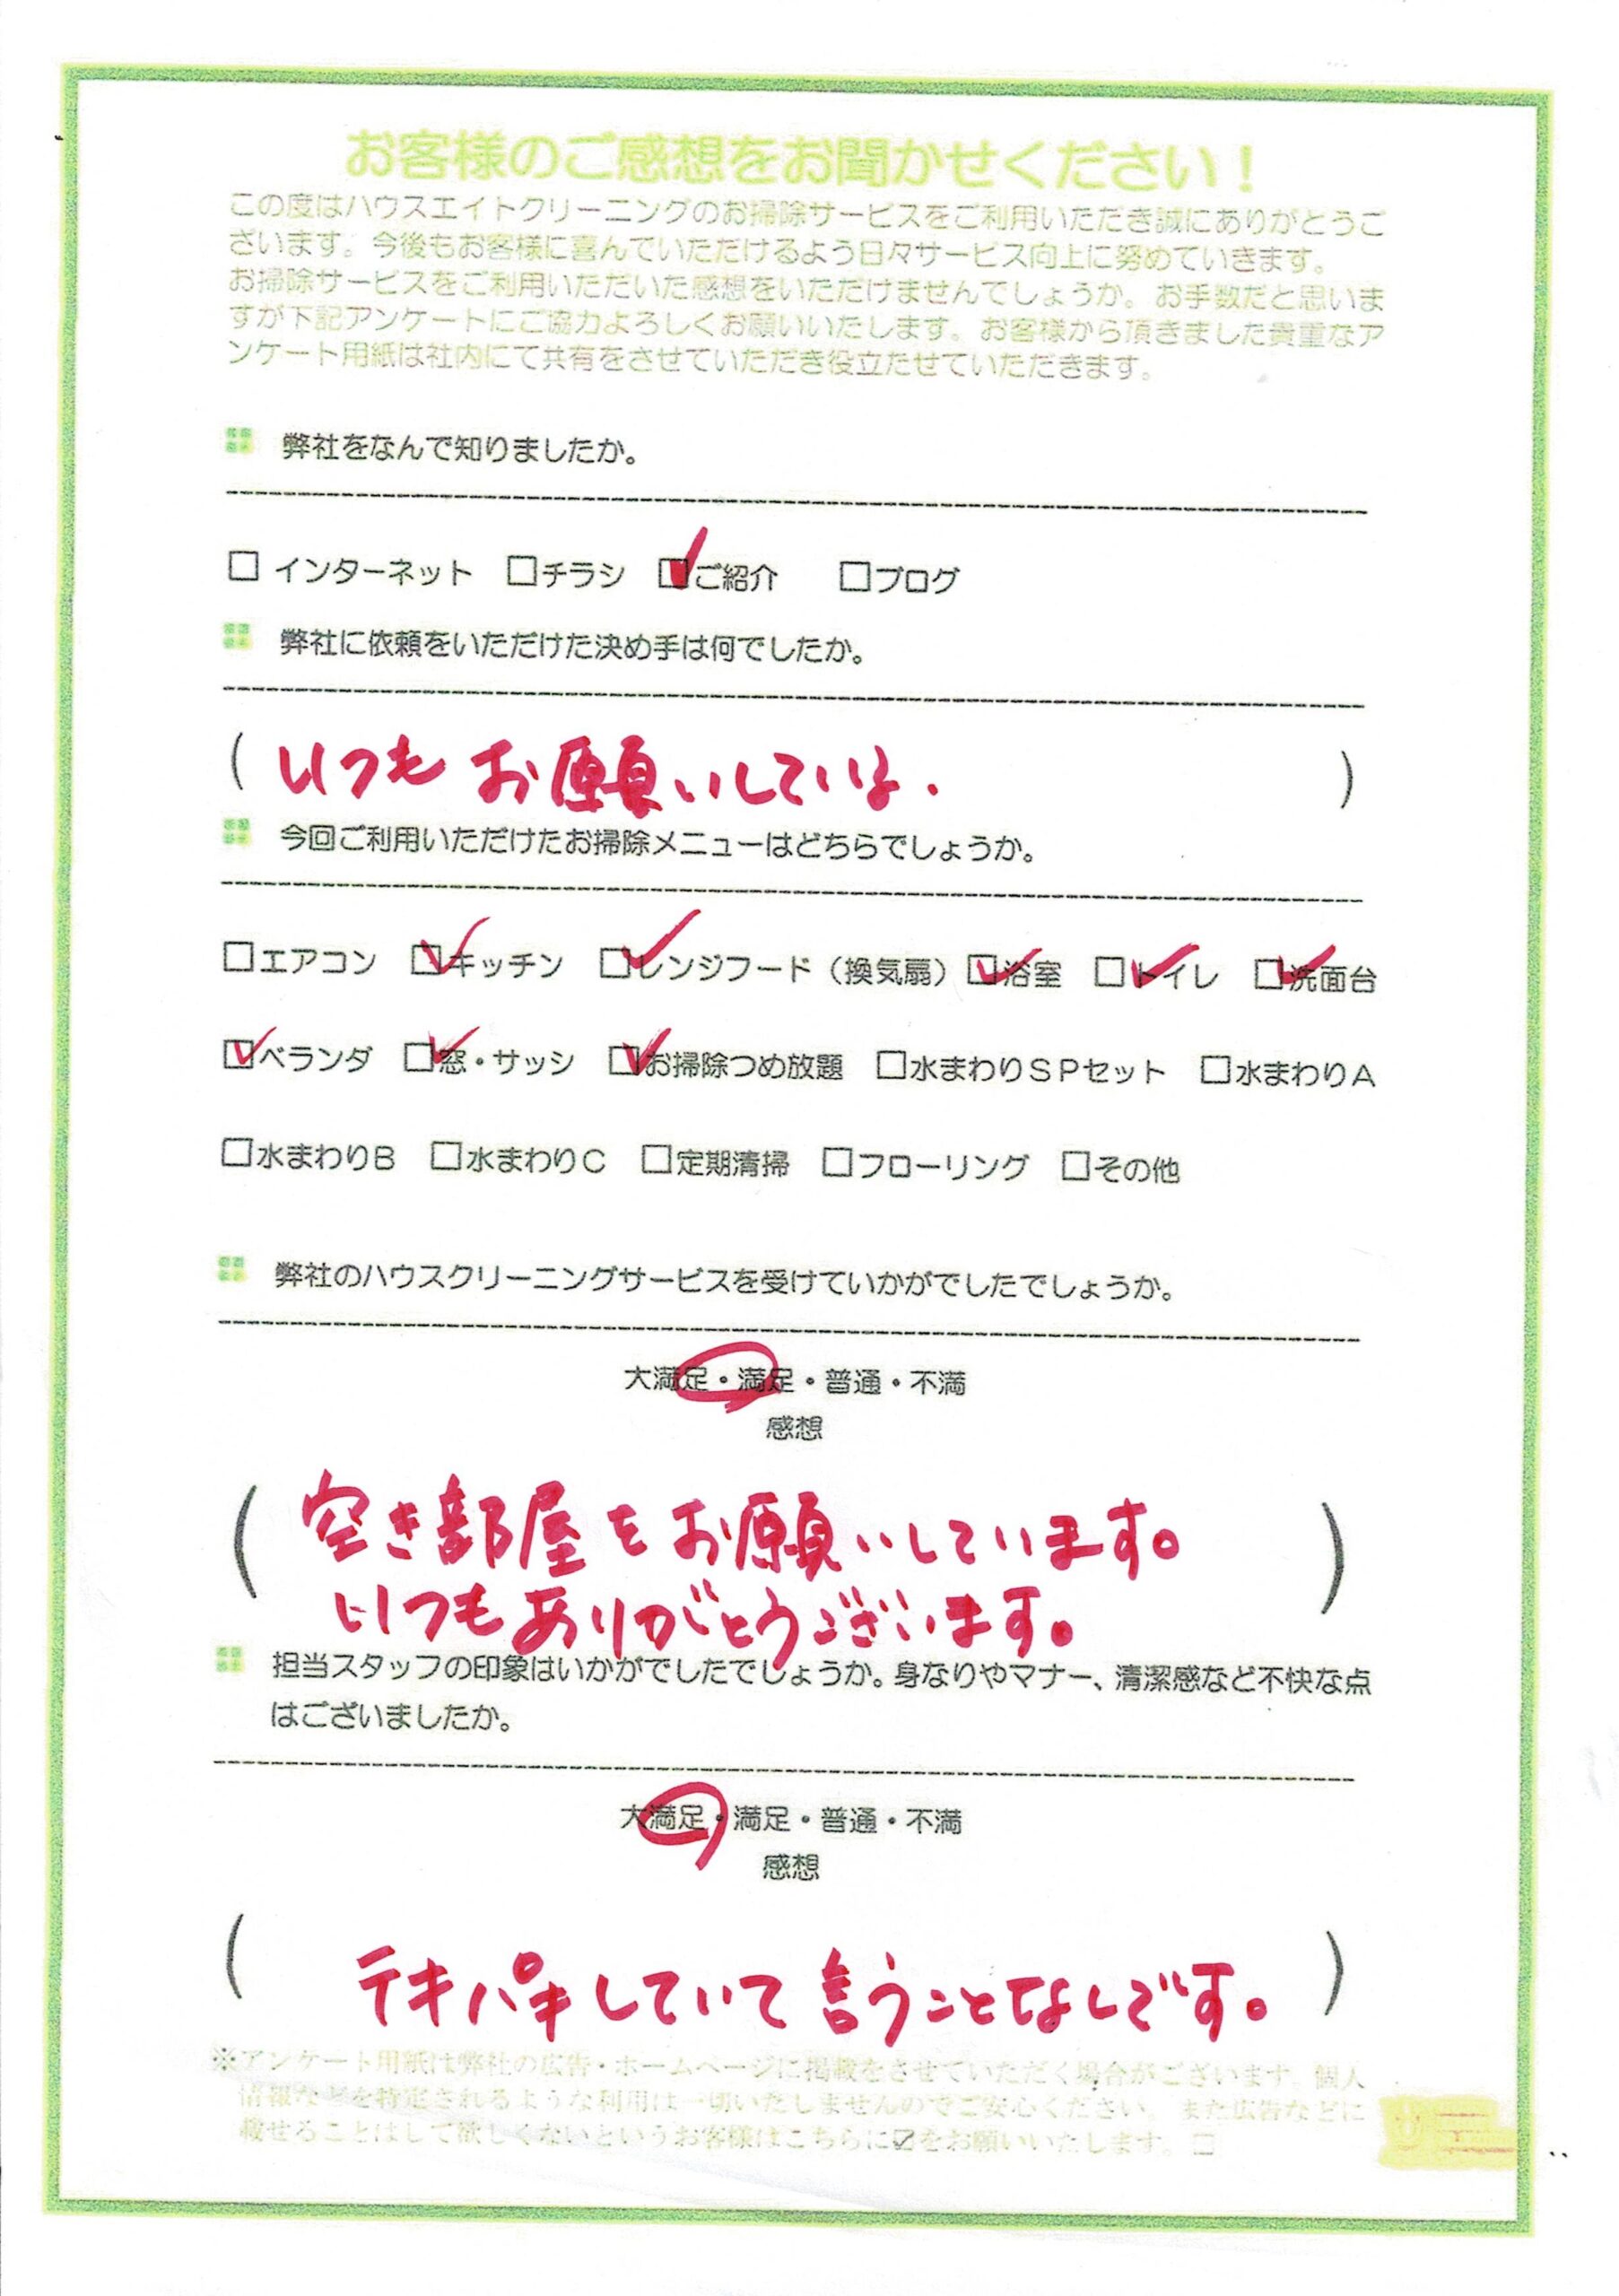 お客様のご感想をお聞かせください！
この度はハウスエイトクリーニングのお掃除サービスをご利用いただき誠にありがとうご
ざいます。今後もお客様に喜んでいただけるよう日々サービス向上に努めていきます。
お掃除サービスをご利用いただいた感想をいただけませんでしょうか。お手数だと思いま
すが下記アンケートにご協力よろしくお願いいたします。お客様から頂きました貴重なア
ンケート用紙は社内にて共有をさせていただき役立たせていただきます。
弊社をなんで知りましたか。
□ インターネット □チラシ ☑ご紹介 □ブログ
弊社に依頼をいただけた決め手は何でしたか。
（ いつもお願いしている. ）
今回ご利用いただけたお掃除メニューはどちらでしょうか。
□エアコン ☑キッチン ☑レンジフード（換気扇）☑浴室 ☑トイレ ☑洗面台
☑ベランダ ☑窓・サッシ ☑お掃除つめ放題 □水まわりＳＰセット □水まわりＡ
□水まわりＢ □水まわりＣ □定期清掃 □フローリング □その他
弊社のハウスクリーニングサービスを受けていかがでしたでしょうか。
大満足・満足・普通・不満
感想
（ 空き部屋をお願いしています。
いつもありがとうございます。 ）
担当スタッフの印象はいかがでしたでしょうか。身なりやマナー、清潔感など不快な点
はございましたか。
大満足・満足・普通・不満
感想
（ テキパキしていて言うことなしです。 ）
※アンケート用紙は弊社の広告・ホームページに掲載をさせていただく場合がございます。個人
情報などを特定されるような利用は一切いたしませんのでご安心ください。また広告などに
載せることはして欲しくないというお客様はこちらに☑をお願いいたします。□